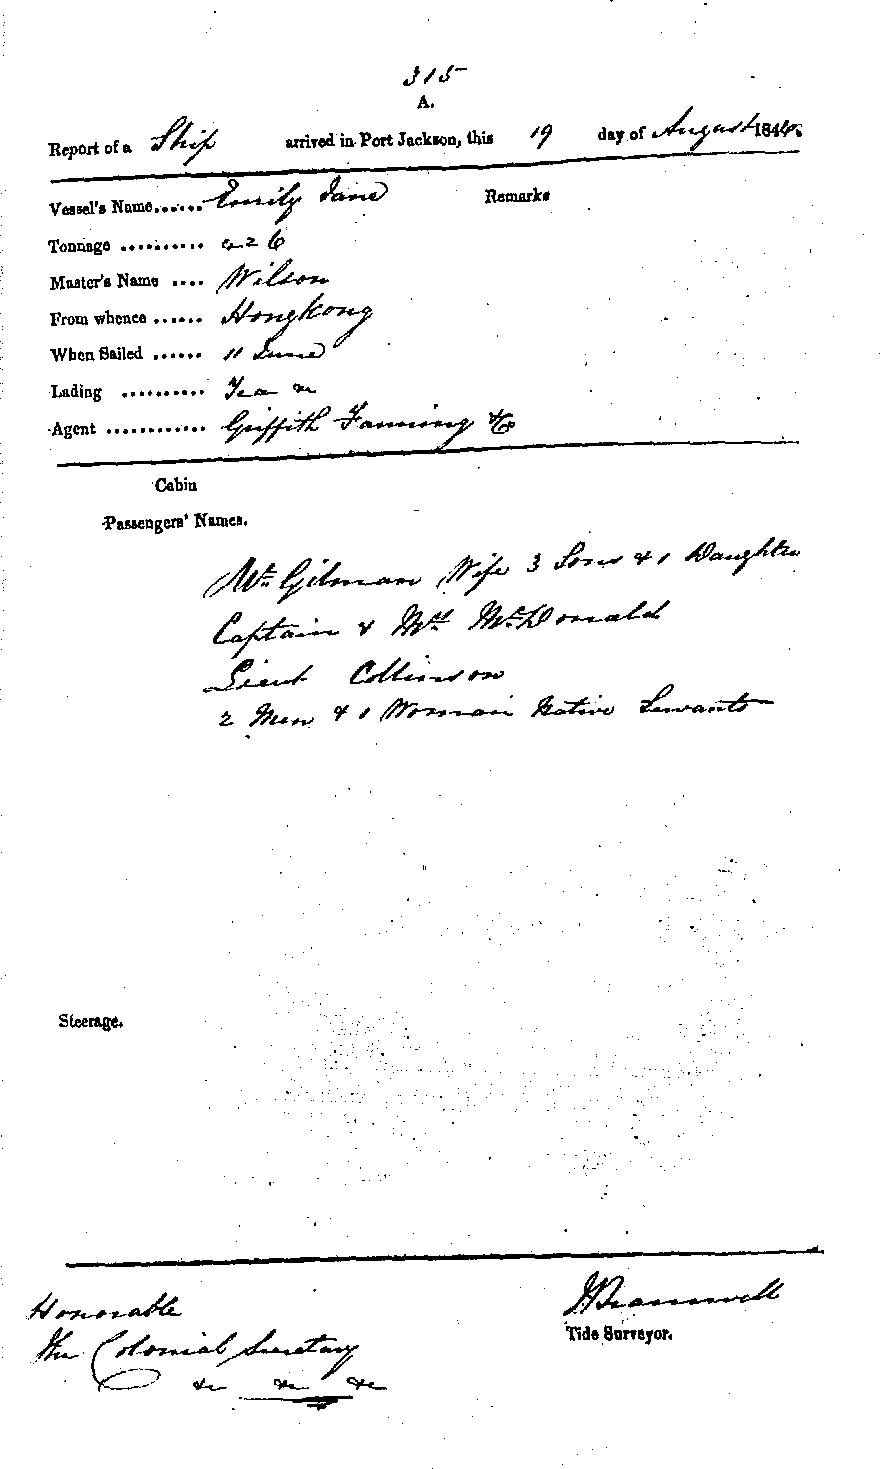 315
A.
Report of a Ship arrived in Port Jackson, this 19 day of August 1846.
Vessel's Name...... Emily Jane Remarks
Tonnage .......... 426
Master's Name .... Wilson
From whence ...... Hongkong
When Sailed ...... 11 June
Lading .......... Tea &c
Agent ............ Griffith Fanning & Co
Cabin
Passengers' Names.
Mr. Gilman Wife 3 Sons & 1 Daughter
Captain & Mrs McDonald
Lieut Collinson
2 Men & 1 Woman Native Servants
Steerage.
Honorable
The Colonial Secretary
&c &c &c
Bramwell
Tide Surveyor.